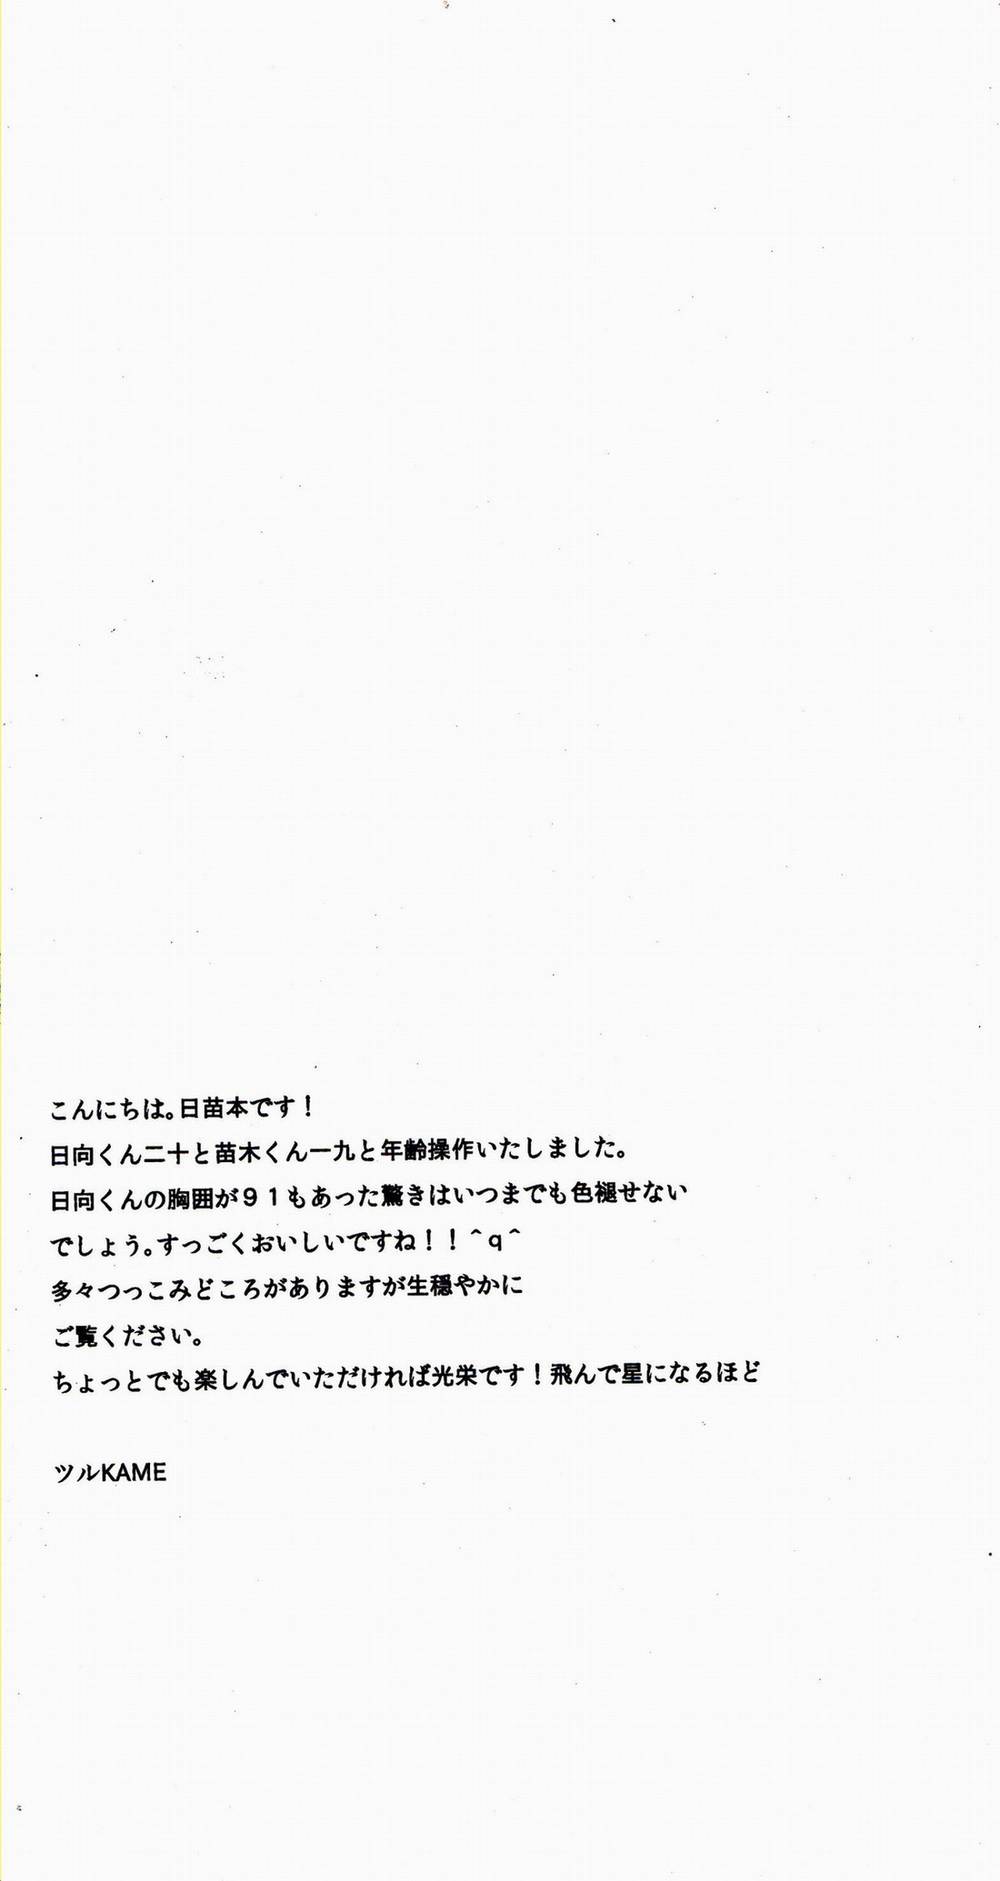 こんにちは。日苗本です！
日向くん二十と苗木くん一九と年齢操作いたしました。
日向くんの胸囲が９１もあった驚きはいつまでも色褪せない
でしょう。すっごくおいしいですね！！＾ｑ＾
多々つっこみどころがありますが生穏やかに
ご覧ください。
ちょっとでも楽しんでいただければ光栄です！飛んで星になるほど
ツルKAME